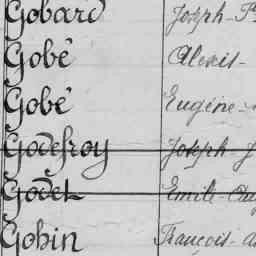 Gobard Joseph-
Gobé Alexis-
Gobé Eugène-
Godefroy Joseph-
Godet Emile-
Gohin François-